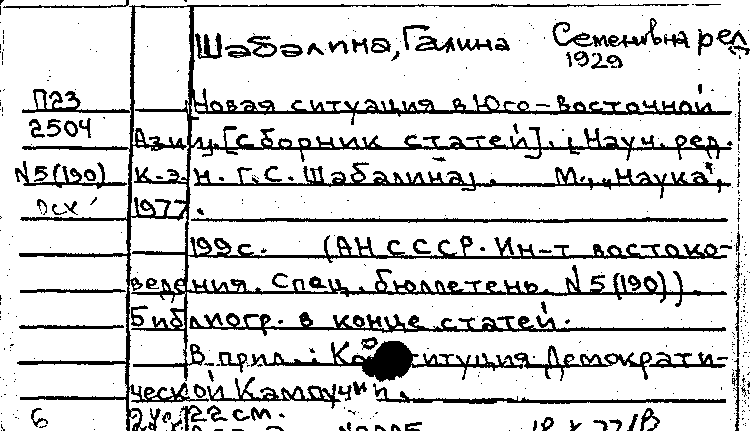 Шабалина, Галина Семеновна ред
1929
П23 Новая ситуация в Юго-Восточной
2504 Азии. [Сборник статей]. [Науч. ред.
N5(190) к.э.н. Г.С. Шабалина]. М., "Наука",
1977.
199с. (АН СССР. Ин-т востоко-
ведения. Спец. бюллетень. N5(190)).
Библиогр. в конце статей.
В прил.: Конституция Демократи-
ческой Кампучии.
6 22 см.